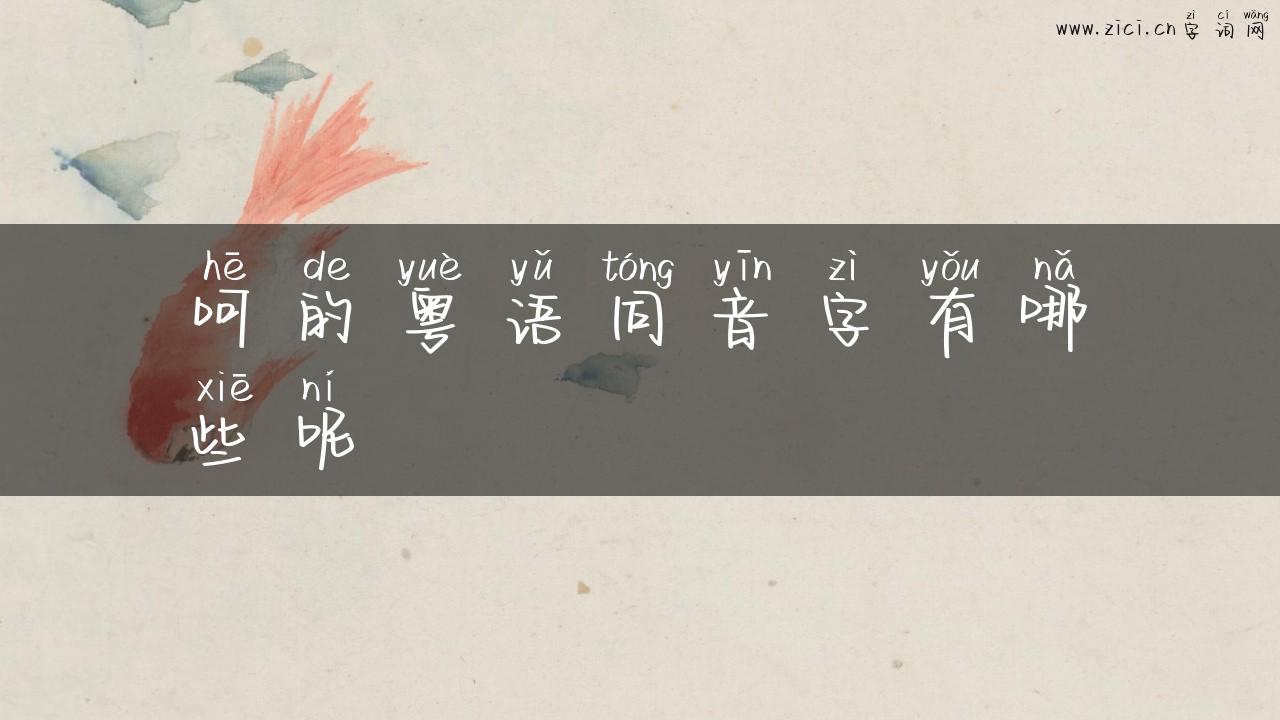 zì cí wǎng
www.zici.cn 字 词 网
hē de yuè yǔ tóng yīn zì yǒu nǎ
呵 的 粤 语 同 音 字 有 哪
xiē ní
些 呢